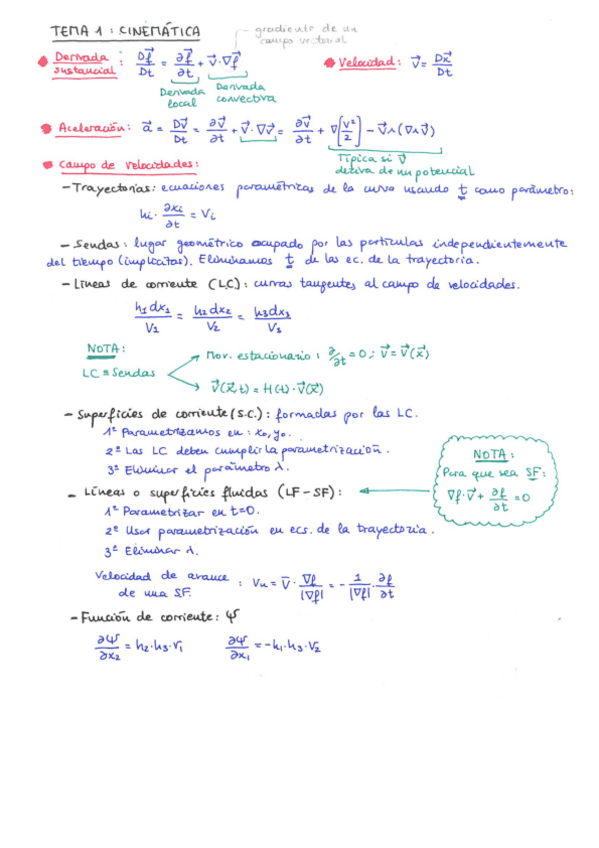 TEMA 1: CINEMÁTICA
gradiente de un campo vectorial
• Derivada sustancial: Df⃗/Dt = ∂f⃗/∂t + v⃗·∇f⃗
Derivada local
Derivada convectiva
• Velocidad: v⃗ = Dx⃗/Dt
• Aceleración: a⃗ = Dv⃗/Dt = ∂v⃗/∂t + v⃗·∇v⃗ = ∂v⃗/∂t + ∇[v²/2] − v⃗∧(∇∧v⃗)
Típica si v⃗ deriva de un potencial
• Campo de velocidades:
– Trayectorias: ecuaciones paramétricas de la curva usando t como parámetro:
hi · ∂xi/∂t = Vi
– Sendas: lugar geométrico ocupado por las partículas independientemente
del tiempo (implícitas). Eliminamos t de las ec. de la trayectoria.
– Líneas de corriente (LC): curvas tangentes al campo de velocidades.
h1dx1/V1 = h2dx2/V2 = h3dx3/V3
NOTA:
LC ≡ Sendas
Mov. estacionario: ∂/∂t = 0; v⃗ = v⃗(x⃗)
v⃗(x⃗,t) = H(t)·v⃗(x⃗)
– Superficies de corriente (S.C.): formadas por las LC.
1º Parametrizamos en: x0, y0.
2º Las LC deben cumplir la parametrización.
3º Eliminar el parámetro λ.
NOTA:
Para que sea SF:
∇f·v⃗ + ∂f/∂t = 0
– Líneas o superficies fluidas (LF – SF):
1º Parametrizar en t=0.
2º Usar parametrización en ecs. de la trayectoria.
3º Eliminar λ.
Velocidad de avance de una SF: Vn = v⃗ · ∇f/|∇f| = − 1/|∇f| · ∂f/∂t
– Función de corriente: Ψ
∂Ψ/∂x2 = h2·h3·V1
∂Ψ/∂x1 = −h1·h3·V2